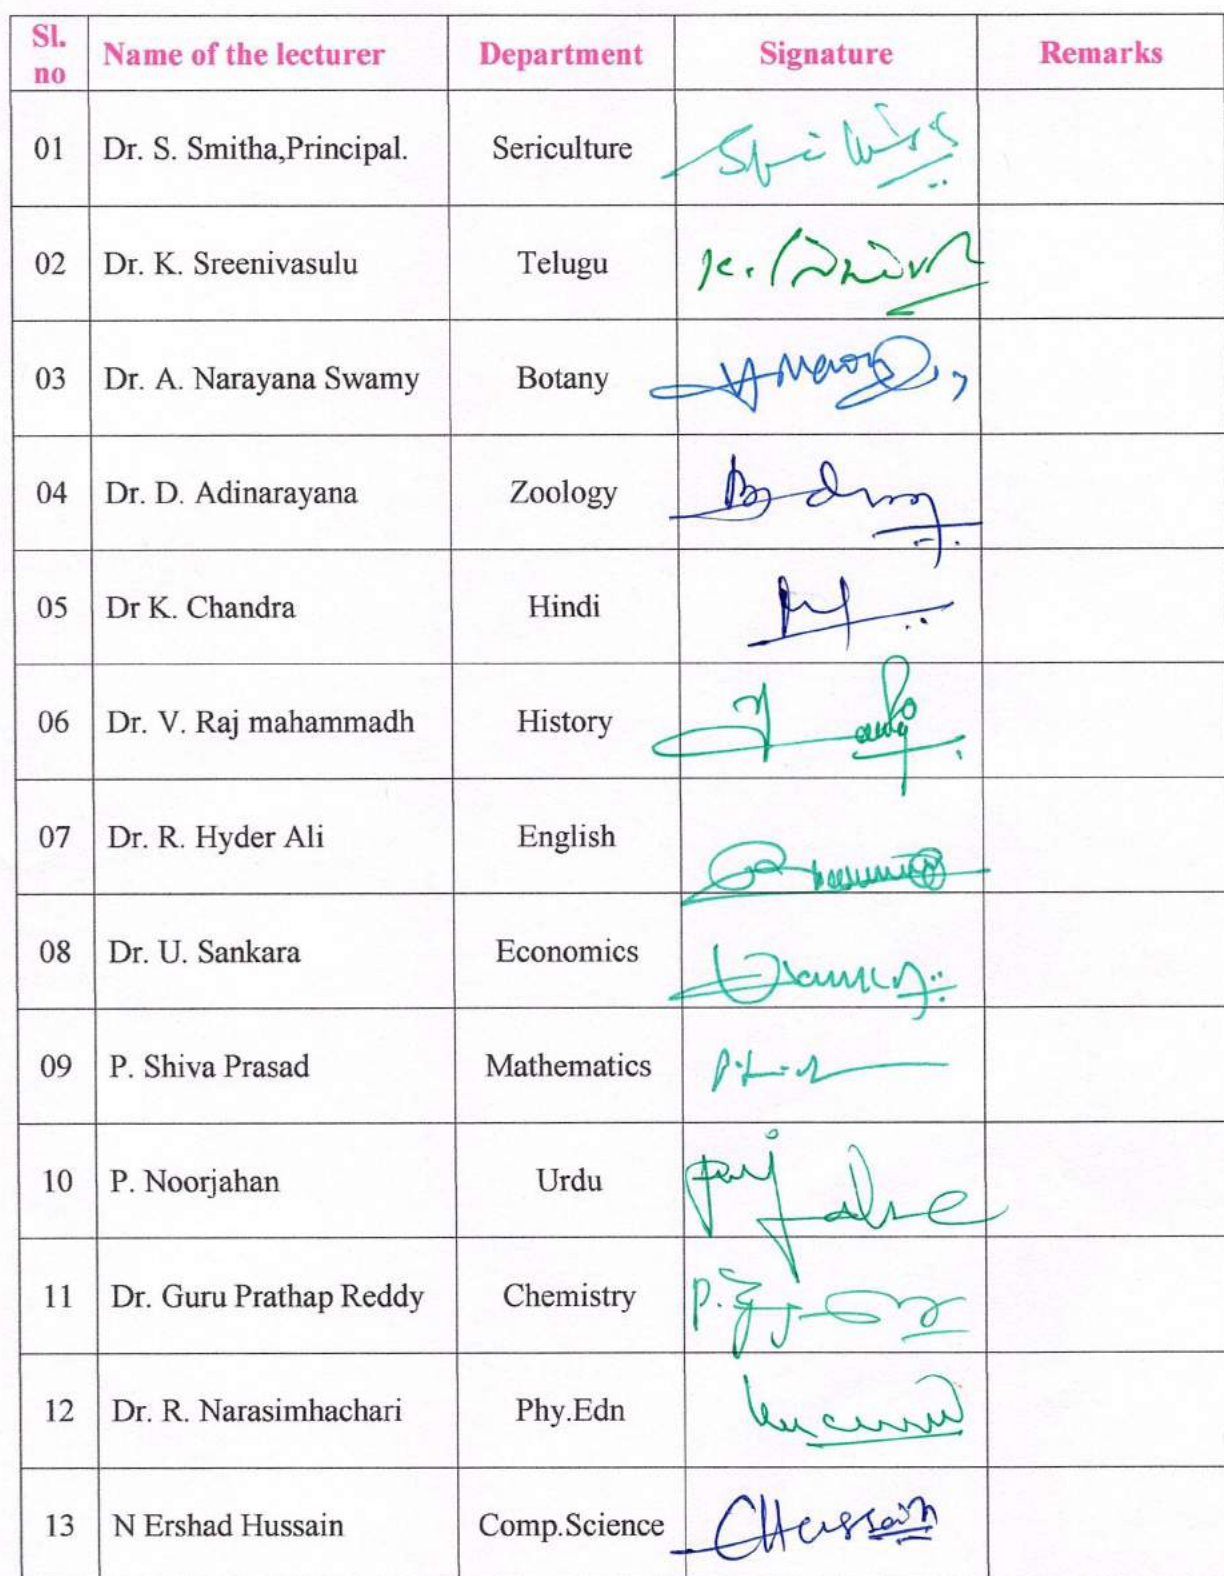 Sl. no Name of the lecturer Department Signature Remarks
01 Dr. S. Smitha,Principal. Sericulture
02 Dr. K. Sreenivasulu Telugu
03 Dr. A. Narayana Swamy Botany
04 Dr. D. Adinarayana Zoology
05 Dr K. Chandra Hindi
06 Dr. V. Raj mahammadh History
07 Dr. R. Hyder Ali English
08 Dr. U. Sankara Economics
09 P. Shiva Prasad Mathematics
10 P. Noorjahan Urdu
11 Dr. Guru Prathap Reddy Chemistry
12 Dr. R. Narasimhachari Phy.Edn
13 N Ershad Hussain Comp.Science